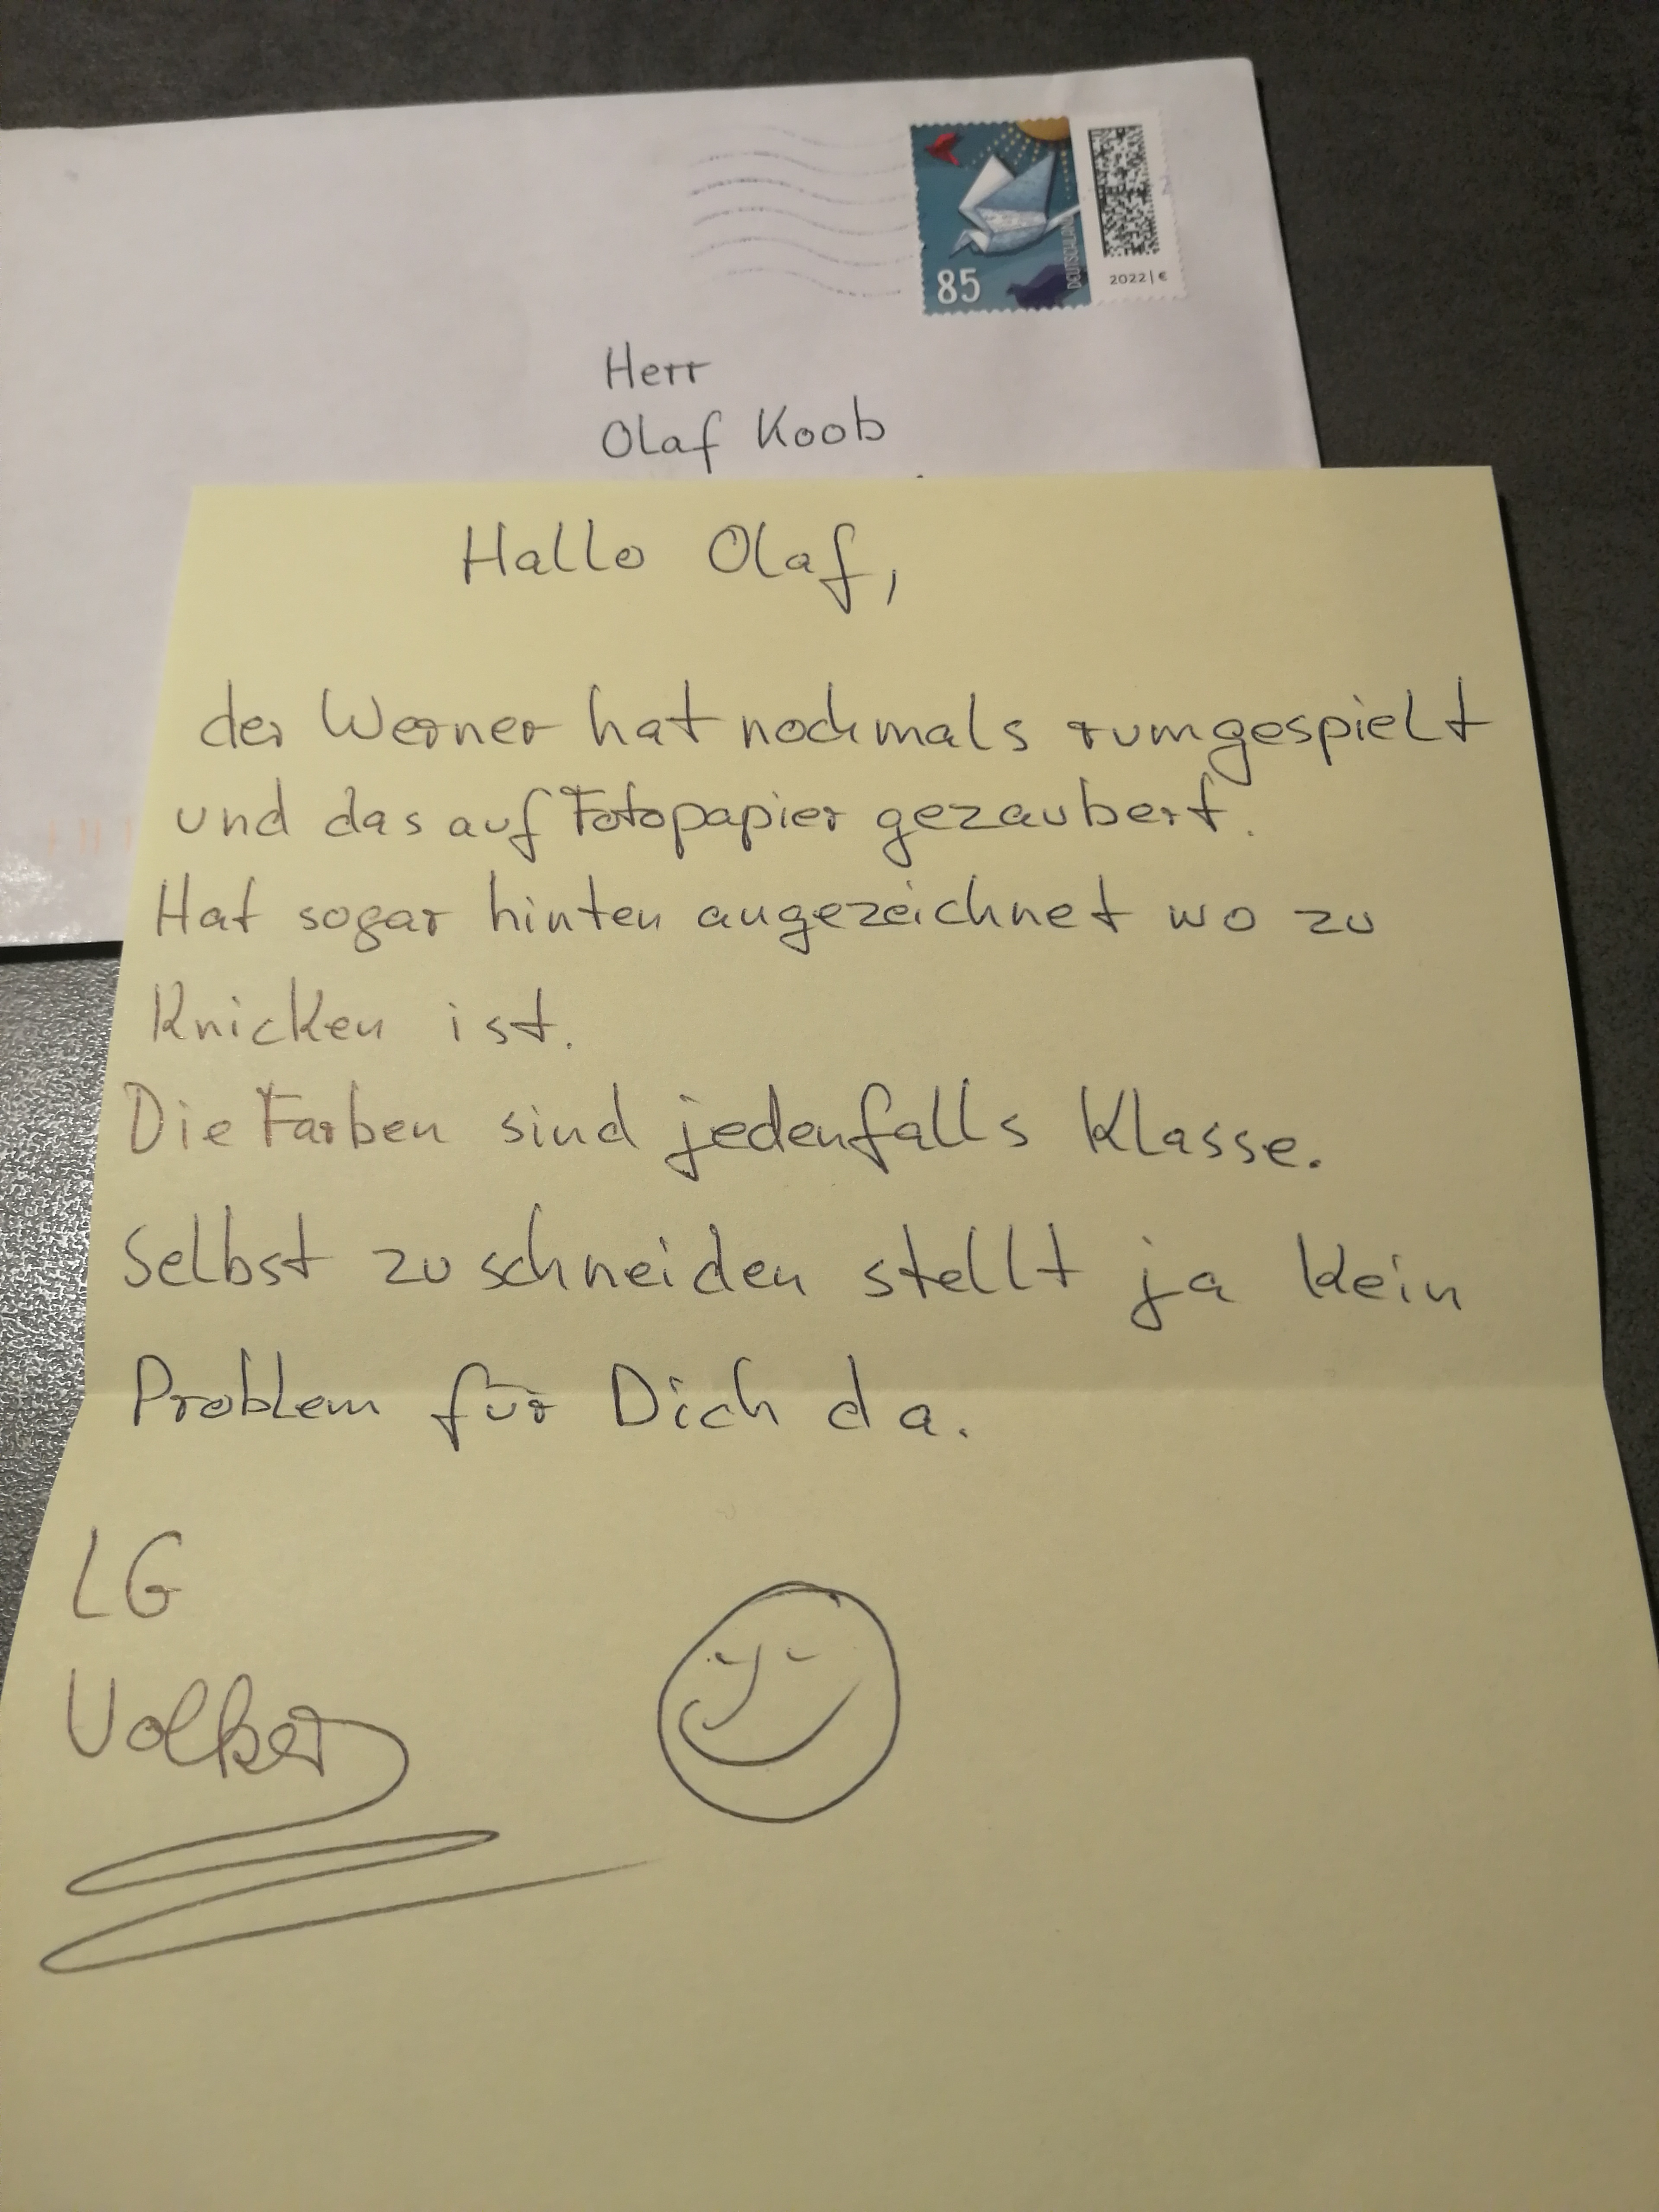 85
DEUTSCHLAND
2022 | €
Herr
Olaf Koob
Hallo Olaf,
der Werner hat nochmals rumgespielt
und das auf Fotopapier gezaubert.
Hat sogar hinten angezeichnet wo zu
Knicken ist.
Die Farben sind jedenfalls Klasse.
Selbst zu schneiden stellt ja kein
Problem für Dich da.
LG
Volker